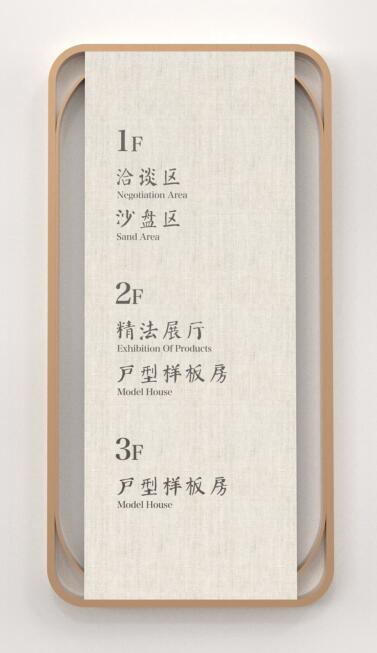 1F
洽谈区
Negotiation Area
沙盘区
Sand Area
2F
精法展厅
Exhibition Of Products
户型样板房
Model House
3F
户型样板房
Model House